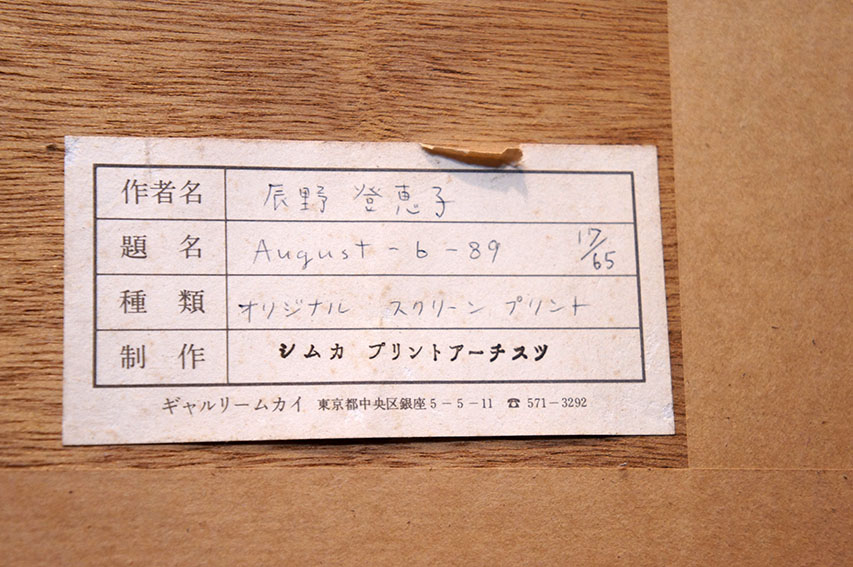 作者名 辰野 登恵子
題名 August-6-89 17/65
種類 オリジナル スクリーン プリント
制作 シムカ プリントアーチスツ
ギャルリームカイ 東京都中央区銀座5-5-11 ☎ 571-3292